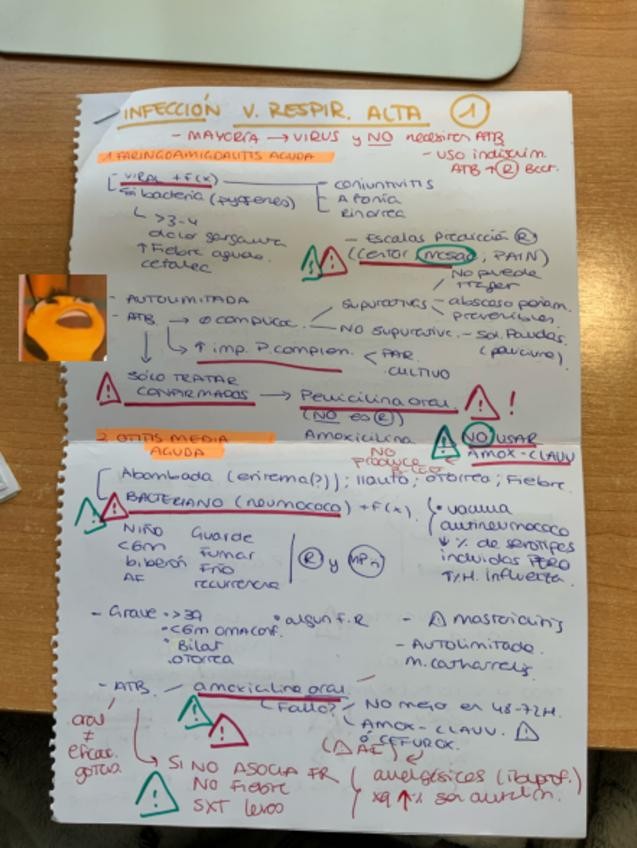 INFECCIÓN V. RESPIR. ALTA 1
- MAYORÍA → VIRUS y NO necesitan ATB
- USO indiscrim. ATB ↑ R Bact.
1 FARINGOAMIGDALITIS AGUDA
- VIRAL + F(x)
CONJUNTIVITIS
AFONÍA
RINORREA
Si bacteria (pyogenes)
> 3-4
dolor garganta
↑ Fiebre aguda
cefalea
- Escalas Predicción R
(Centor, MCISAAC, PAIN)
NO puede
- AUTOLIMITADA
- ATB → complicac.
supurativas - absceso
prevenibles
NO supurative.
↑ imp. P. complem.
CULTIVO
SÓLO TRATAR CONFIRMADOS → Penicilina oral !
(NO es R)
Amoxicilina
NO USAR AMOX-CLAVU
NO produce
2 OTITIS MEDIA AGUDA
Abombada (eritema(?)); llanto; otorrea; Fiebre
BACTERIANO (neumococo) + F(x)
• vacuna antineumococo
↓ % de serotipos incluidos PERO
T/H. Influenza.
NIÑO
biberón
AF
Guarde
Fumar
Frío
recurrencia
R y
- Grave • >39
• Bilat
• otorrea
• algun F.R
- mastoiditis
- Autolimitada.
M. catharralis
- ATB. - amoxicilina oral
Fallo?
NO mejo en 48-72H.
AMOX-CLAVU.
ó CEFUROX.
oral ≠ eficac. gotas
SI NO ASOCIA FR
NO Fiebre
SXT leves
analgésicos (ibuprof.)
xq ↑ %